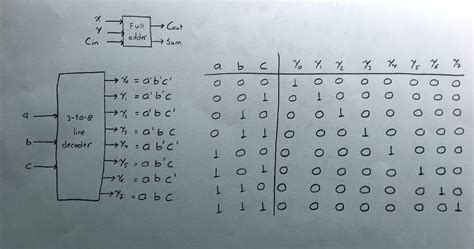 x
y
Cin
Full
adder
Cout
Sum
a
b
c
3-to-8
line
decoder
Y0 = a'b'c'
Y1 = a'b'c
Y2 = a'b c'
Y3 = a'b c
Y4 = a b'c'
Y5 = a b'c
Y6 = a b c'
Y7 = a b c
a b c Y0 Y1 Y2 Y3 Y4 Y5 Y6 Y7
0 0 0 1 0 0 0 0 0 0 0
0 0 1 0 1 0 0 0 0 0 0
0 1 0 0 0 1 0 0 0 0 0
0 1 1 0 0 0 1 0 0 0 0
1 0 0 0 0 0 0 1 0 0 0
1 0 1 0 0 0 0 0 1 0 0
1 1 0 0 0 0 0 0 0 1 0
1 1 1 0 0 0 0 0 0 0 1